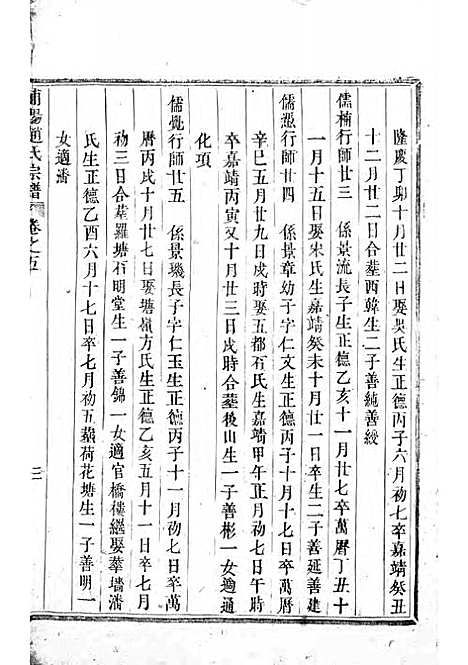 隆慶丁卯十月廿二日娶吳氏生正德丙子六月初七卒嘉靖癸丑
十二月廿二日合塟西韓生二子善純善綬
儒楠行師廿三 係景流長子生正德乙亥十一月廿七卒萬曆丁丑十
一月十五日娶宋氏生嘉靖癸未十月廿一日卒生二子善延善建
儒㴠行師廿四 係景章幼子字仁文生嘉靖
辛巳五月廿九日戌時娶五都石氏生嘉靖甲午正月初七日午時
卒嘉靖丙寅又十月廿三日戌時合塟後山生一子善彬一女適通
化項
儒覺行師廿五 係景璣長子字仁玉生正德丙子十一月初七日卒萬
曆丙戌十月廿七日娶塘嶺方氏生正德乙亥五月十一日卒七月
初三日合塟羅塘石明堂生一子善錦一女適官橋樓繼娶塟墻潘
氏生正德乙酉六月十七日卒七月初五塟荷花塘生一子善明一
女適潘
浦陽趙氏宗譜 卷之五
三